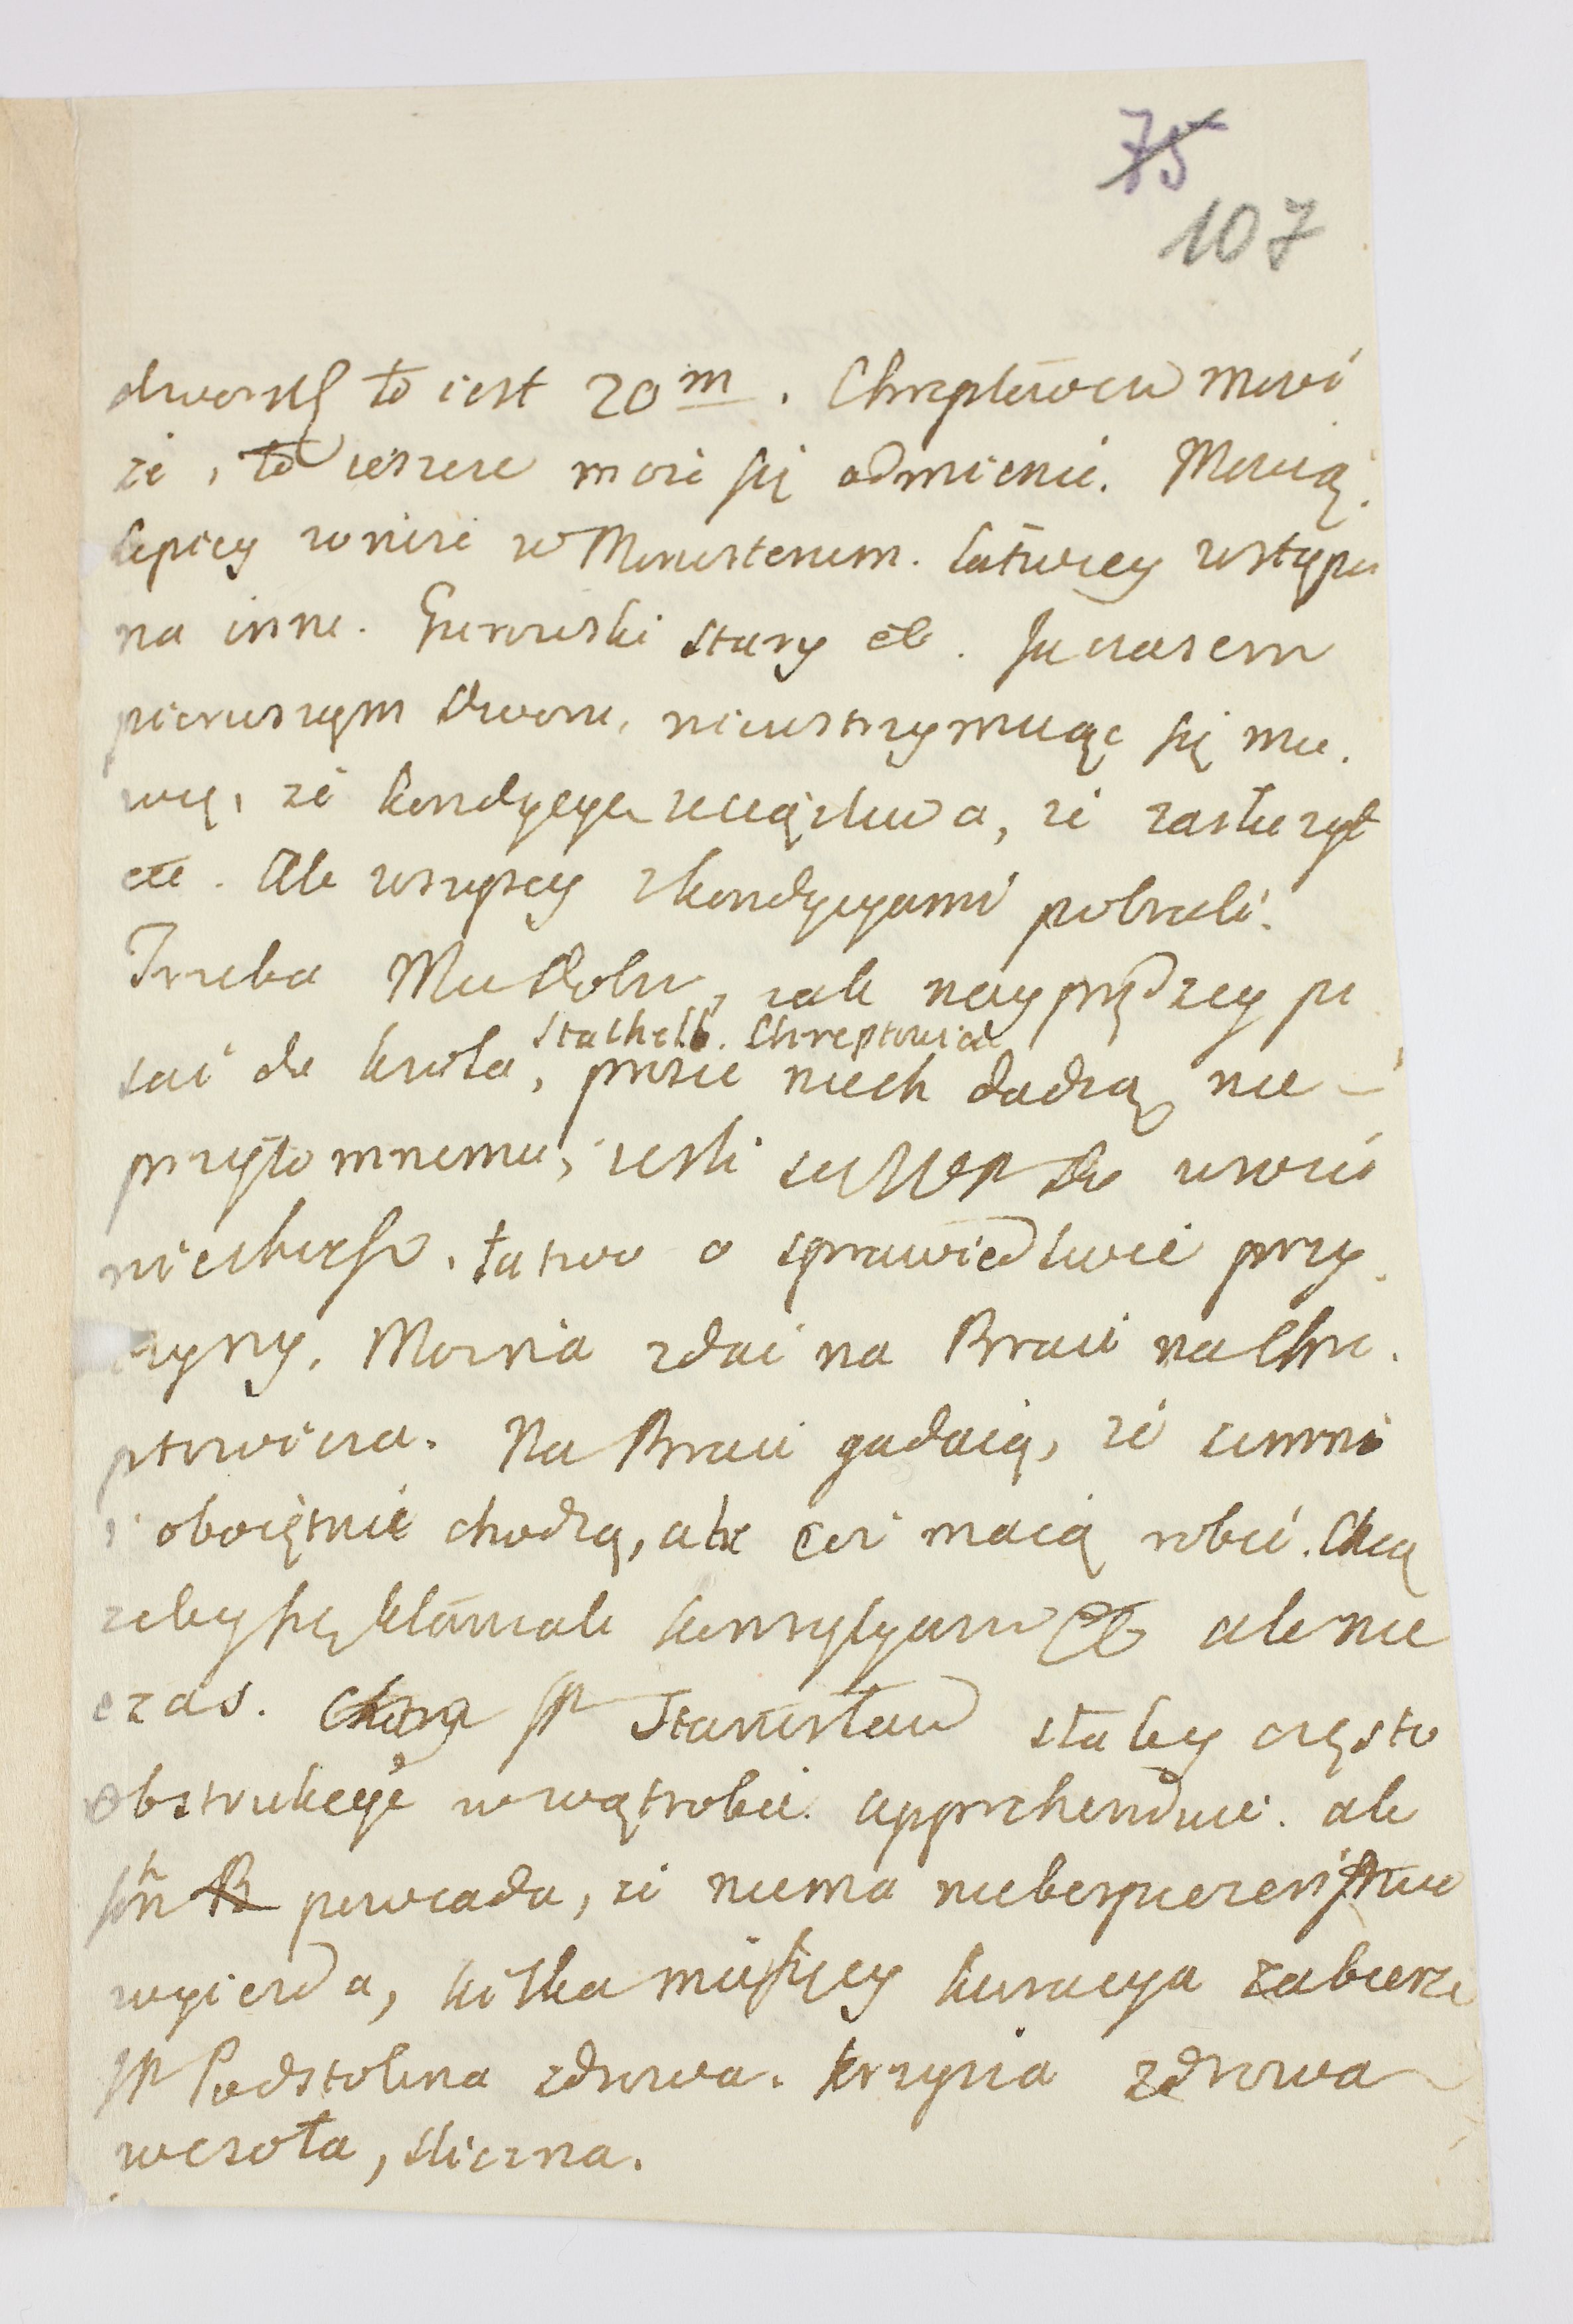 75
107
to iest 20m. Chreptowicz mowi
że, to ieszcze może się odmienić. Mowią
lepiey wniść w Ministerium. łatwiey wstępu
na inne. Gurowski stary etc. Ja czasem
pierwszym dworu, nieustrzymuiąc się mu-
wię, że kondycya uciążliwa, że zasłużył
etc. Ale wszyscy z kondycyami pobrali.
Trzeba iak nayprędzey pi
Stackelb. Chreptowicz
sać do krola, prosić niech dadzą nie
przytomnemu, iesli do wrocić
łatwo o sprawiedliwie przy-
czyny. Można zdać na Braci na Chre-
ptowicza. Na Braci gadaią, że zimni
i oboiętnie chodzą, ale coż maią robić. Chcą
żeby się kłaniali etc ale nie
czas. JP Stanisław słaby często
obstrukcye w wątrobie. apprehenduie. ale
powiada, że niema niebespieczeństwa
wyiezda, kilka miesięcy kuracya zabierze
JP Podstolina zdrowa. Krzysia zdrowa
wesoła, sliczna.